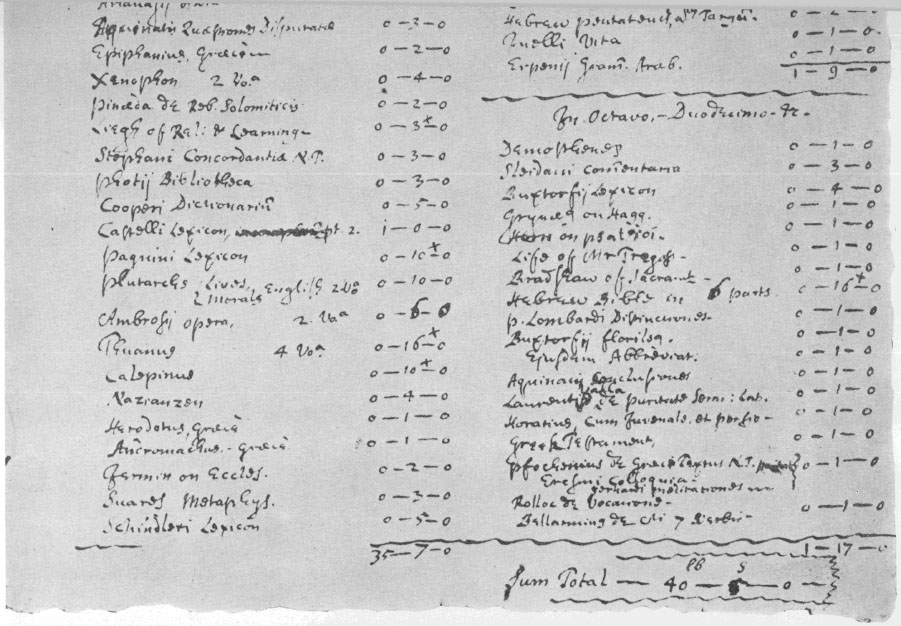 Aquinatis Quæstiones Disputatæ 0-3-0
Epiphanius, Græcè 0-2-0
Xenophon 2 Vo.ª 0-4-0
Pineda de Reb. Solomiticis 0-2-0
Liegh of Reli. & Learning 0-3-0
Stephani Concordantiæ N.T. 0-3-0
Photij Bibliotheca 0-3-0
Cooperi Dictionariũ 0-5-0
Castelli Lexicon, pt 2. 1-0-0
Pagnini Lexicon 0-10-0
Plutarchs Lives, & Morals English 2 Vo 0-10-0
Ambrosij opera, 2 Vo.ª 0-6-0
Thuanus 4 Vo.ª 0-16-0
Calepinus 0-10-0
Nazianzen 0-4-0
Herodotus, Græcè 0-1-0
Andromachus - Græcè 0-1-0
Fermin on Eccles. 0-2-0
Suares Metaphys. 0-3-0
Schindleri Lexicon 0-5-0
35-7-0
Hebrew Pentateuch,
Juelli Vita 0-1-0
Erpenij Gram. Arab. 0-1-0
1-9-0
In Octavo, - Duodecimo - &c.
Demosthenes 0-1-0
Sleidani Com̃entaria 0-3-0
Buxtorfij Lexicon 0-4-0
Gryneus on Hagg. 0-1-0
on 0-1-0
Life of Mr 0-1-0
Bradshaw of Sacramt - 0-1-0
Hebrew Bible in 6 parts. 0-16-0
P. Lombardi Distinctiones - 0-1-0
Buxtorfij florileg. 0-1-0
Ejusdem Abbreviat. 0-1-0
Aquinatis Conclusiones 0-1-0
Laurentij Valla de puritate Serm: Lat. 0-1-0
Horatius, cum Juvenale et persio - 0-1-0
Greek Testament, 0-1-0
Pfochenius de Græci Textus N.T. 0-1-0
Erasmi Colloquia -
gerhardi meditationes
Rolloc de Vocatione - 0-1-0
Bellarmine de
1-17-0
lb s
Sum Total - 40-5-0